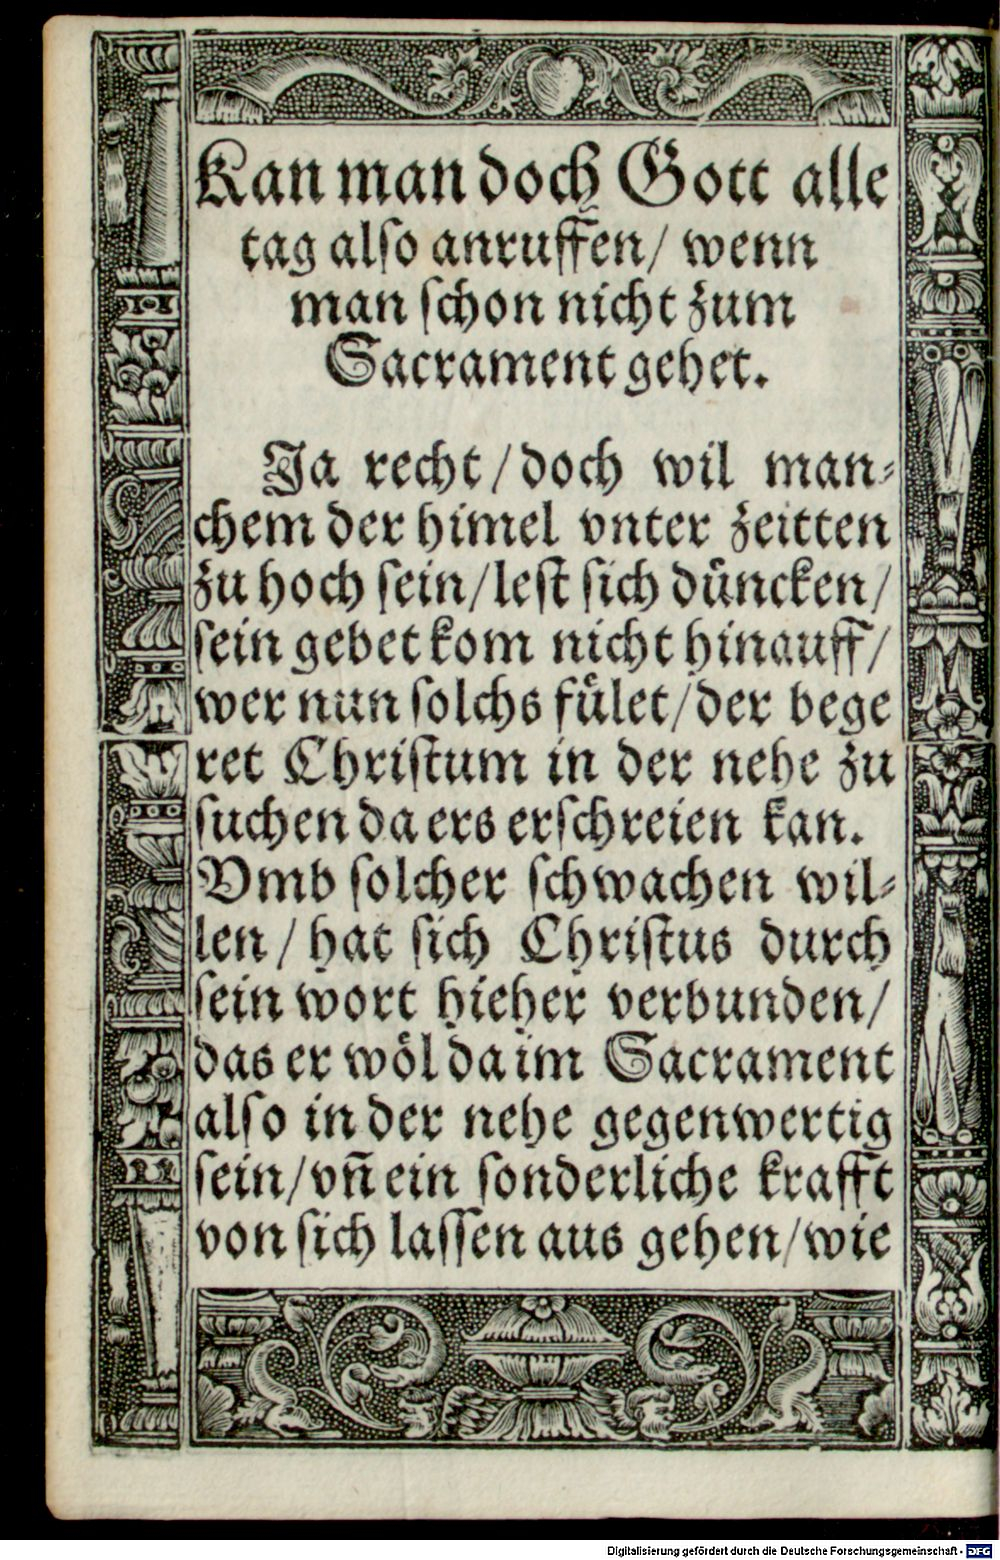 Kan man doch Gott alle
tag also anruffen/ wenn
man schon nicht zum
Sacrament gehet.
Ja recht/doch wil man⸗
chem der himel vnter zeitten
zu hoch sein/lest sich düncken/
sein gebet kom nicht hinauff/
wer nun solchs fület/der bege
ret Christum in der nehe zu
suchen da ers erschreien kan.
Vmb solcher schwachen wil⸗
len/ hat sich Christus durch
sein wort hieher verbunden/
das er wöl da im Sacrament
also in der nehe gegenwertig
sein/vñ ein sonderliche krafft
von sich lassen aus gehen/wie
Digitalisierung gefördert durch die Deutsche Forschungsgemeinschaft - DFG